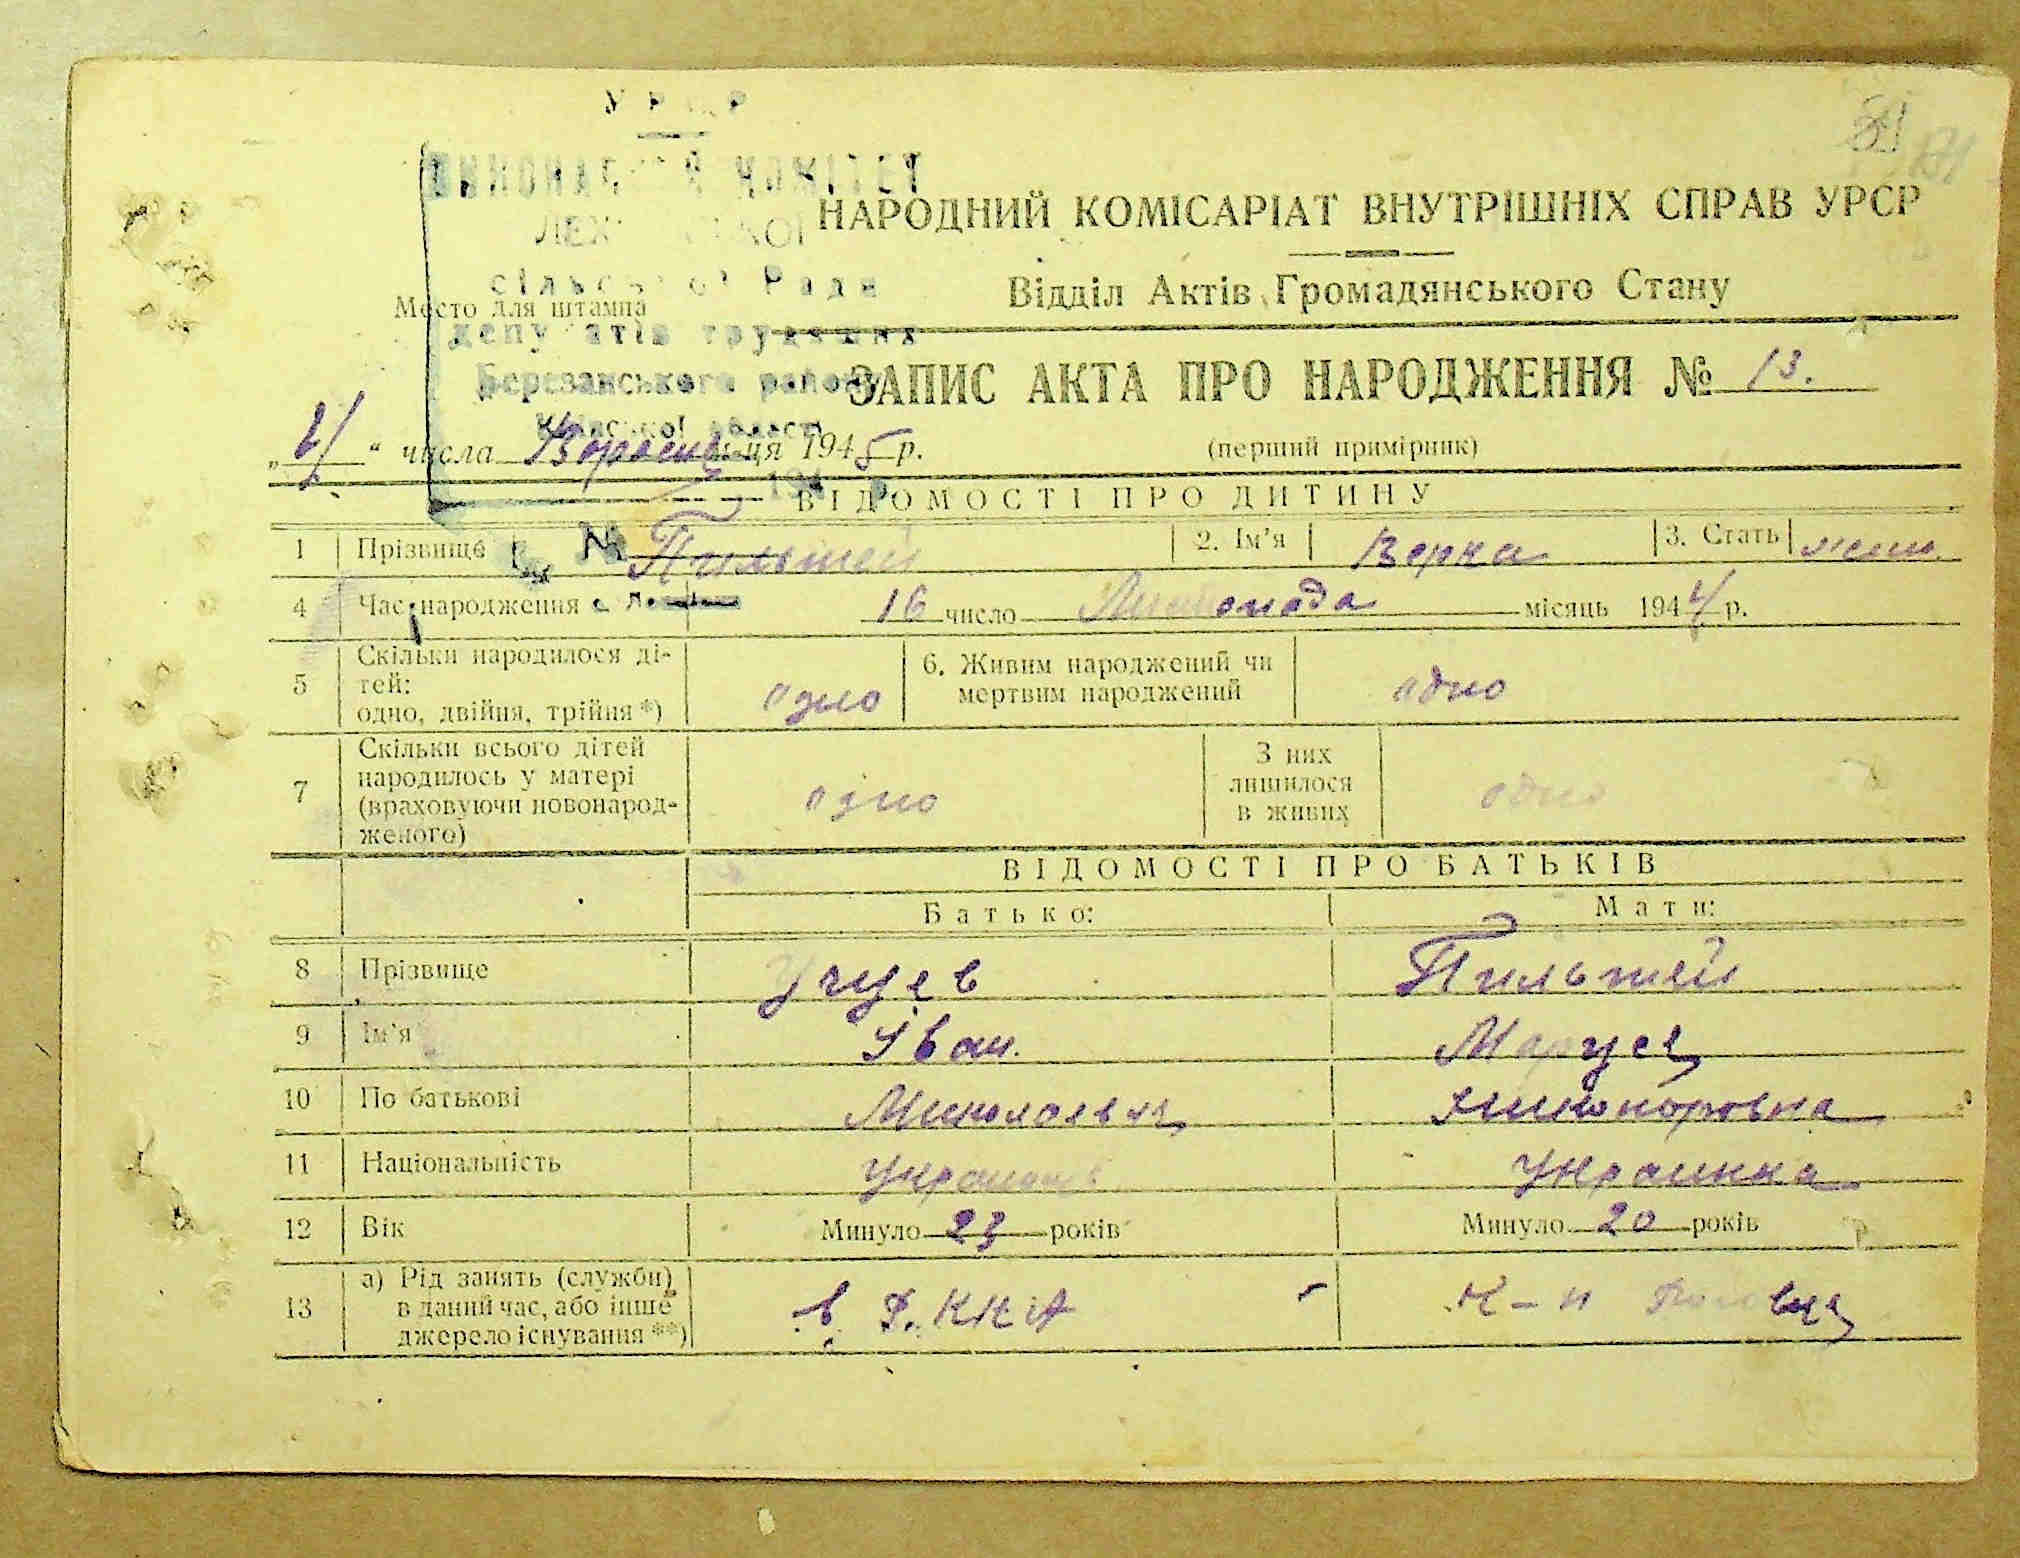 У Р С Р
КОМІТЕТ
сільської Ради
депутатів трудящих
Березанського району
Київської області
НАРОДНИЙ КОМІСАРІАТ ВНУТРІШНІХ СПРАВ УРСР
Відділ Актів Громадянського Стану
Место для штампа
ЗАПИС АКТА ПРО НАРОДЖЕННЯ № 13.
„4" числа місяця 1945 р.
(перший примірник)
ВІДОМОСТІ ПРО ДИТИНУ
1 Прізвище № Пильтей 2. Ім'я Верка 3. Стать жен.
4 Час народження 16 число Листопада місяць 1944 р.
5 Скільки народилося ді-
тей:
одно, двійня, трійня *) одно 6. Живим народжений чи
мертвим народжений одно
7 Скільки всього дітей
народилось у матері
(враховуючи новонарод-
женого) одно З них
лишилося
в живих одно
ВІДОМОСТІ ПРО БАТЬКІВ
Батько: Мати:
8 Прізвище Пильтей
9 Ім'я Іван. Маруся
10 По батькові Никоноровна
11 Національність Украинка
12 Вік Минуло 23 років Минуло 20 років
13 а) Рід занять (служби)
в даний час, або інше
джерело існування **) в